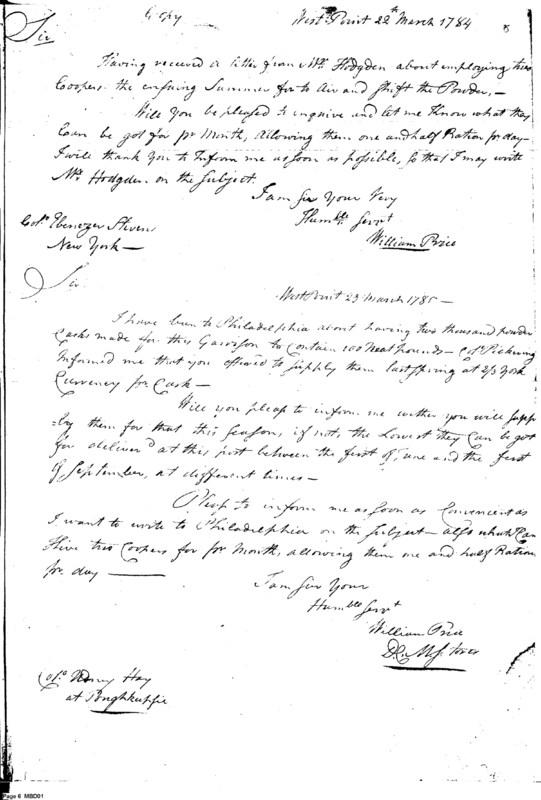 Copy
West Point 22th March 1784
Sir
Having received a letter from Mr. Hodgden about employing two
Coopers the ensuing Summer for to Air and Shift the Powder, —
Will you be pleased to inquire and let me Know what they
Can be got for pr Month, allowing them one and half Ration pr day —
I will thank you to Inform me as soon as possible, so that I may write
Mr. Hodgden on the Subject.
I am Sir Your Very
Humble Servt
William Price
Colo. Ebenezer Stevens
New York —
Sir
West Point 23 March 1785 —
I have been to Philadelphia about having two thousand powder
Casks made for this Garrison to Contain 100 Neat pounds — Colo Pickering
Informed me that you offered to Supply them last Spring at 2/3 York
Currency for Cash —
Will you pleas to inform me wether you will supp
=ly them for that this Season, if not, the Lowest they Can be got
for deliver'd at this post between the first of June and the first
of September, at different times —
Pleas to inform me as soon as Convenient as
I want to write to Philadelphia on the subject — also what I Can
Hire two Coopers for pr Month, allowing them one and half Ration
pr. day —
I am Sir Your
Humble Servt
William Price
Colo Hay
at Poughkeppie
Page 6 MBD01